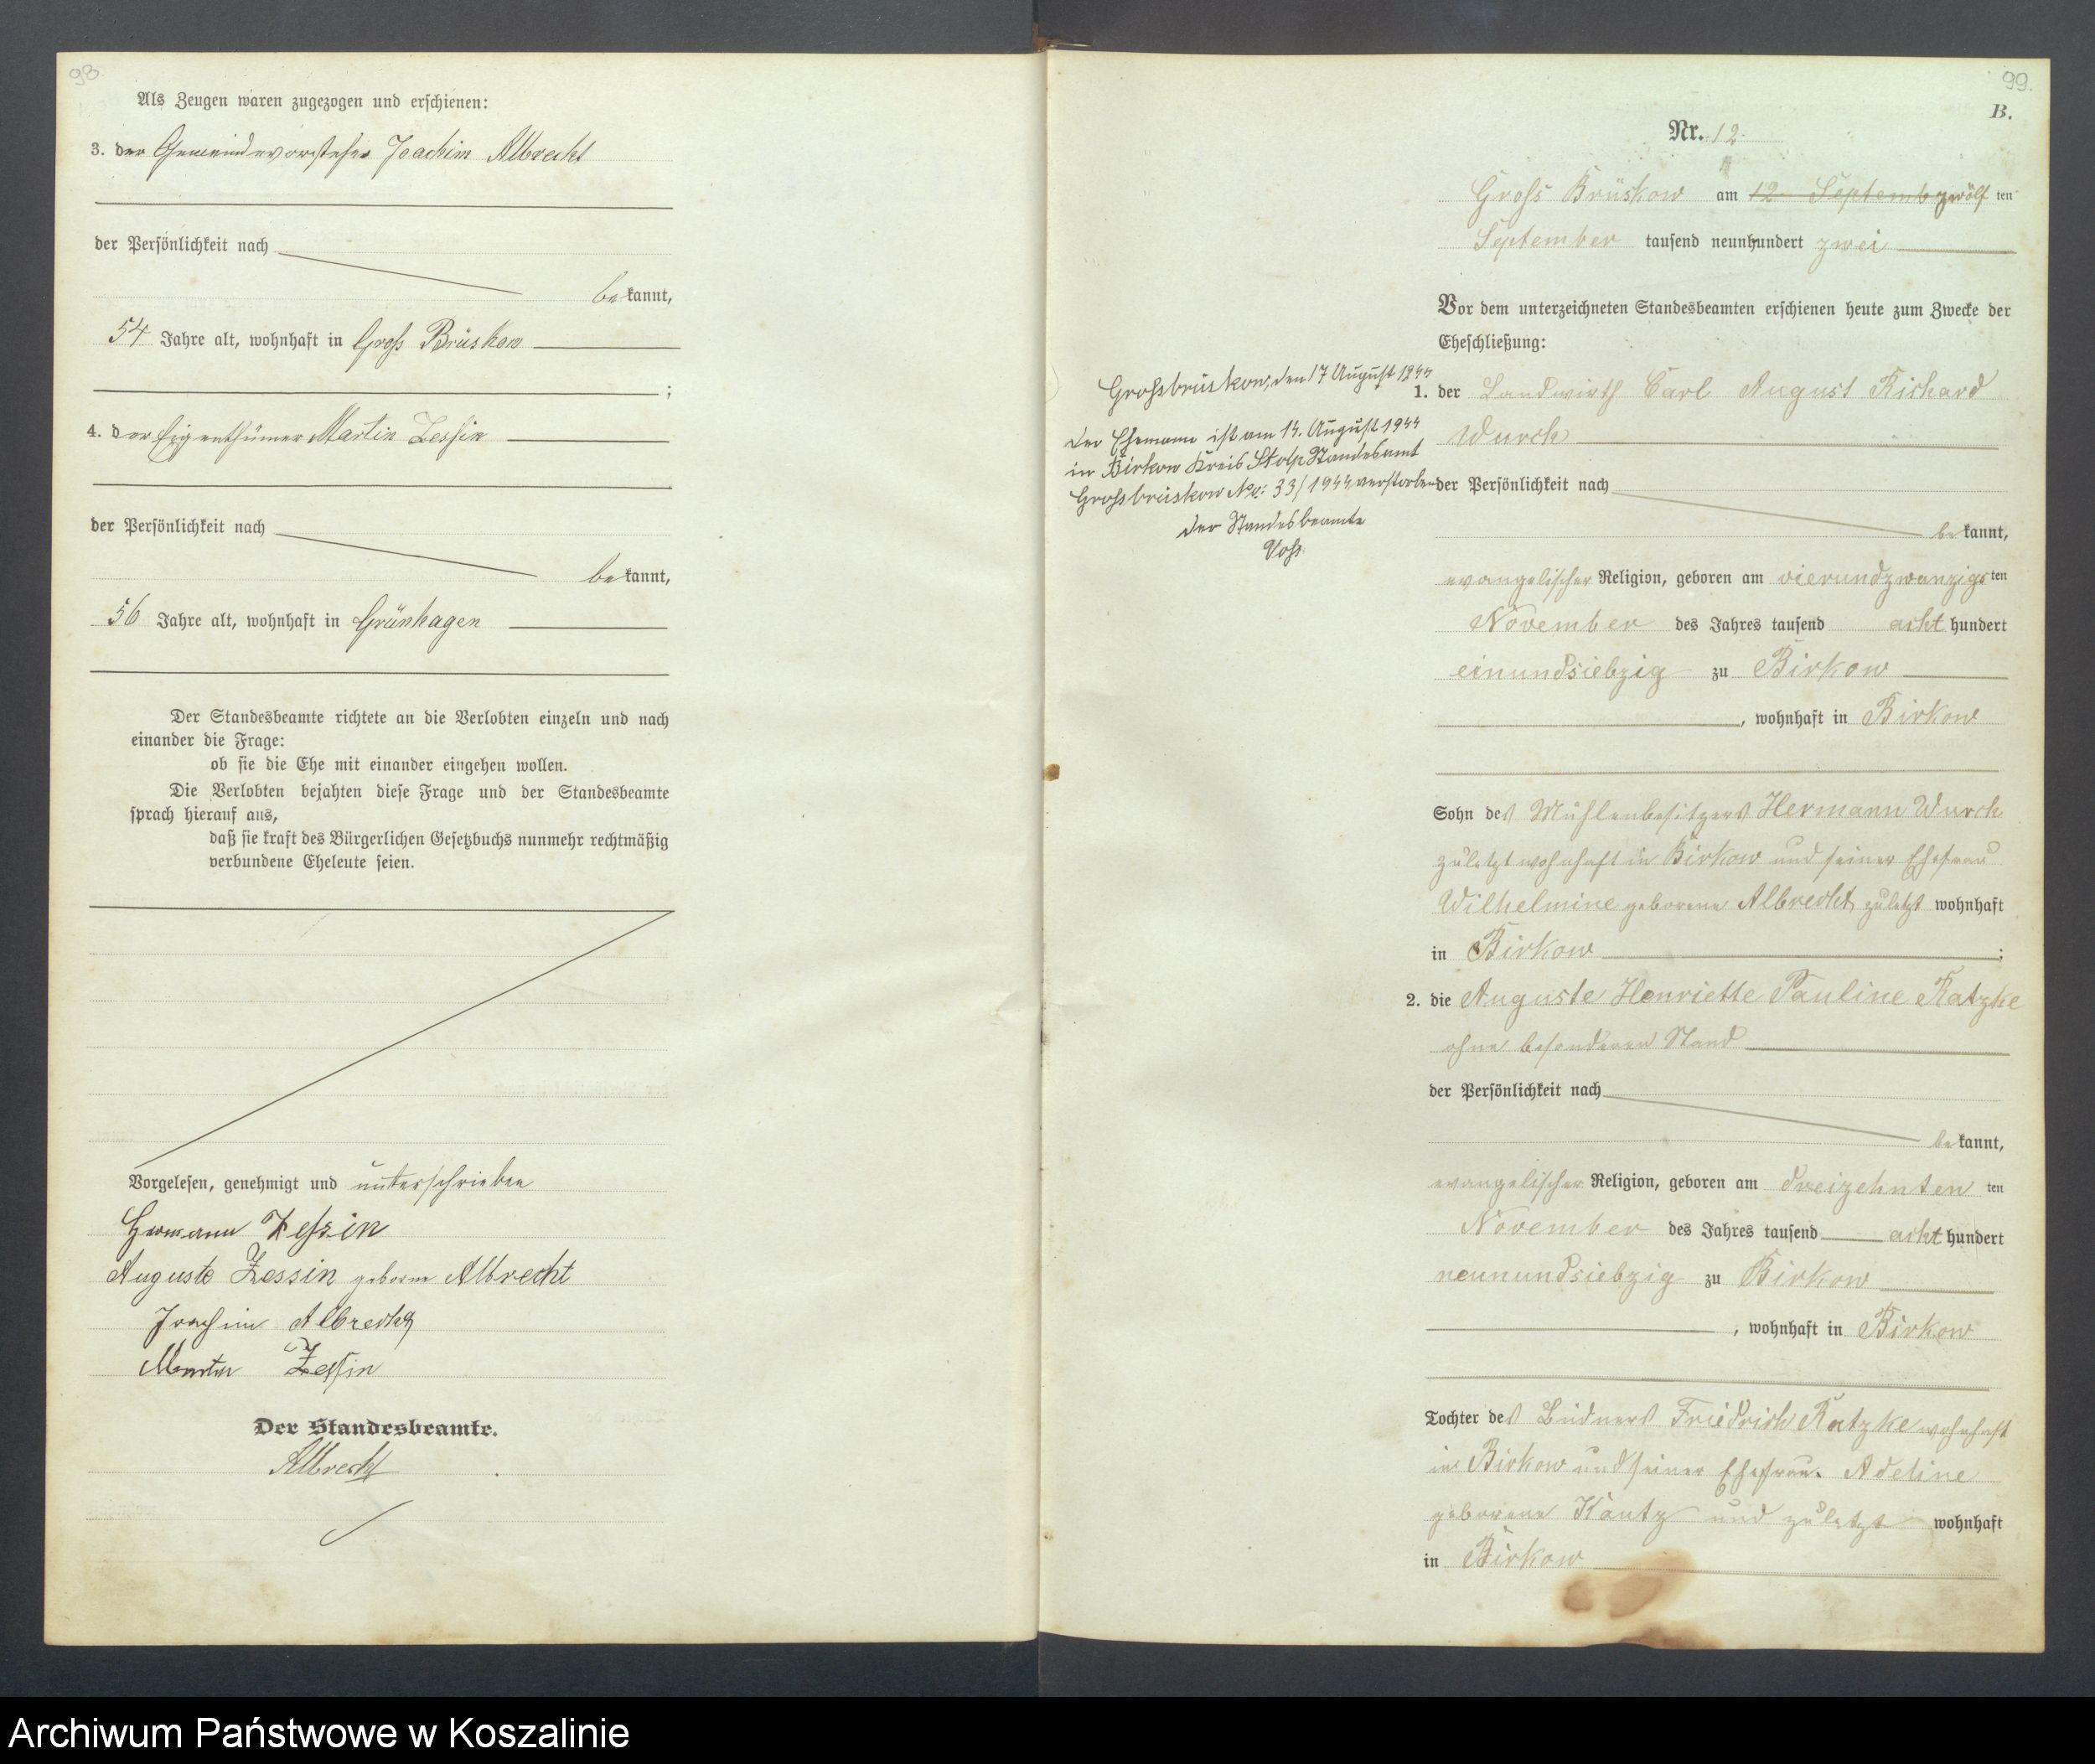 98.
Als Zeugen waren zugezogen und erschienen:
3. der Gemeindevorsteher Joachim Albrecht
der Persönlichkeit nach
bekannt,
54 Jahre alt, wohnhaft in Groß Brüskow
;
4. der Eigenthümer Martin Zessin
der Persönlichkeit nach
bekannt,
56 Jahre alt, wohnhaft in Grünhagen
Der Standesbeamte richtete an die Verlobten einzeln und nach
einander die Frage:
ob sie die Ehe mit einander eingehen wollen.
Die Verlobten bejahten diese Frage und der Standesbeamte
sprach hierauf aus,
daß sie kraft des Bürgerlichen Gesetzbuchs nunmehr rechtmäßig
verbundene Eheleute seien.
Vorgelesen, genehmigt und unterschrieben
Hermann Zessin
Auguste Zessin geborene Albrecht
Joachim Albrecht
Martin Zessin
Der Standesbeamte.
Albrecht
99.
B.
Nr. 12.
Groß Brüskow am 12 Septemb zwölf ten
September tausend neunhundert zwei
Vor dem unterzeichneten Standesbeamten erschienen heute zum Zwecke der
Eheschließung:
1. der Landwirth Carl August Richard
Wurch
der Persönlichkeit nach
bekannt,
evangelischer Religion, geboren am vierundzwanzigsten
November des Jahres tausend acht hundert
einundsiebzig zu Birkow
, wohnhaft in Birkow
Sohn des Mühlenbesitzers Hermann Wurch
zuletzt wohnhaft in Birkow und seiner Ehefrau
Wilhelmine geborene Albrecht, zuletzt wohnhaft
in Birkow ;
2. die Auguste Henriette Pauline Ratzke
ohne besonderen Stand
der Persönlichkeit nach
bekannt,
evangelischer Religion, geboren am dreizehnten ten
November des Jahres tausend acht hundert
neunundsiebzig zu Birkow
, wohnhaft in Birkow
Tochter des Büdners Friedrich Ratzke wohnhaft
in Birkow und seiner Ehefrau Adeline
geborene Kautz und zuletzt wohnhaft
in Birkow
Großbrüskow, den 17 August 1944
Der Ehemann ist am 14. August 1944
in Birkow Kreis Stolp Standesamt
Großbrüskow No: 33/1944 verstorben
Der Standesbeamte
Voß.
Archiwum Państwowe w Koszalinie